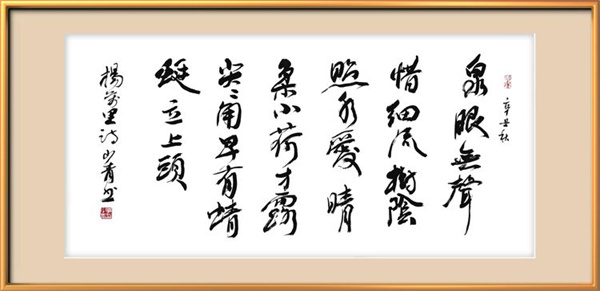 辛丑秋
泉眼無聲
惜細流樹陰
照水愛晴
柔小荷才露
尖〻角早有蜻
蜓立上頭
楊萬里詩